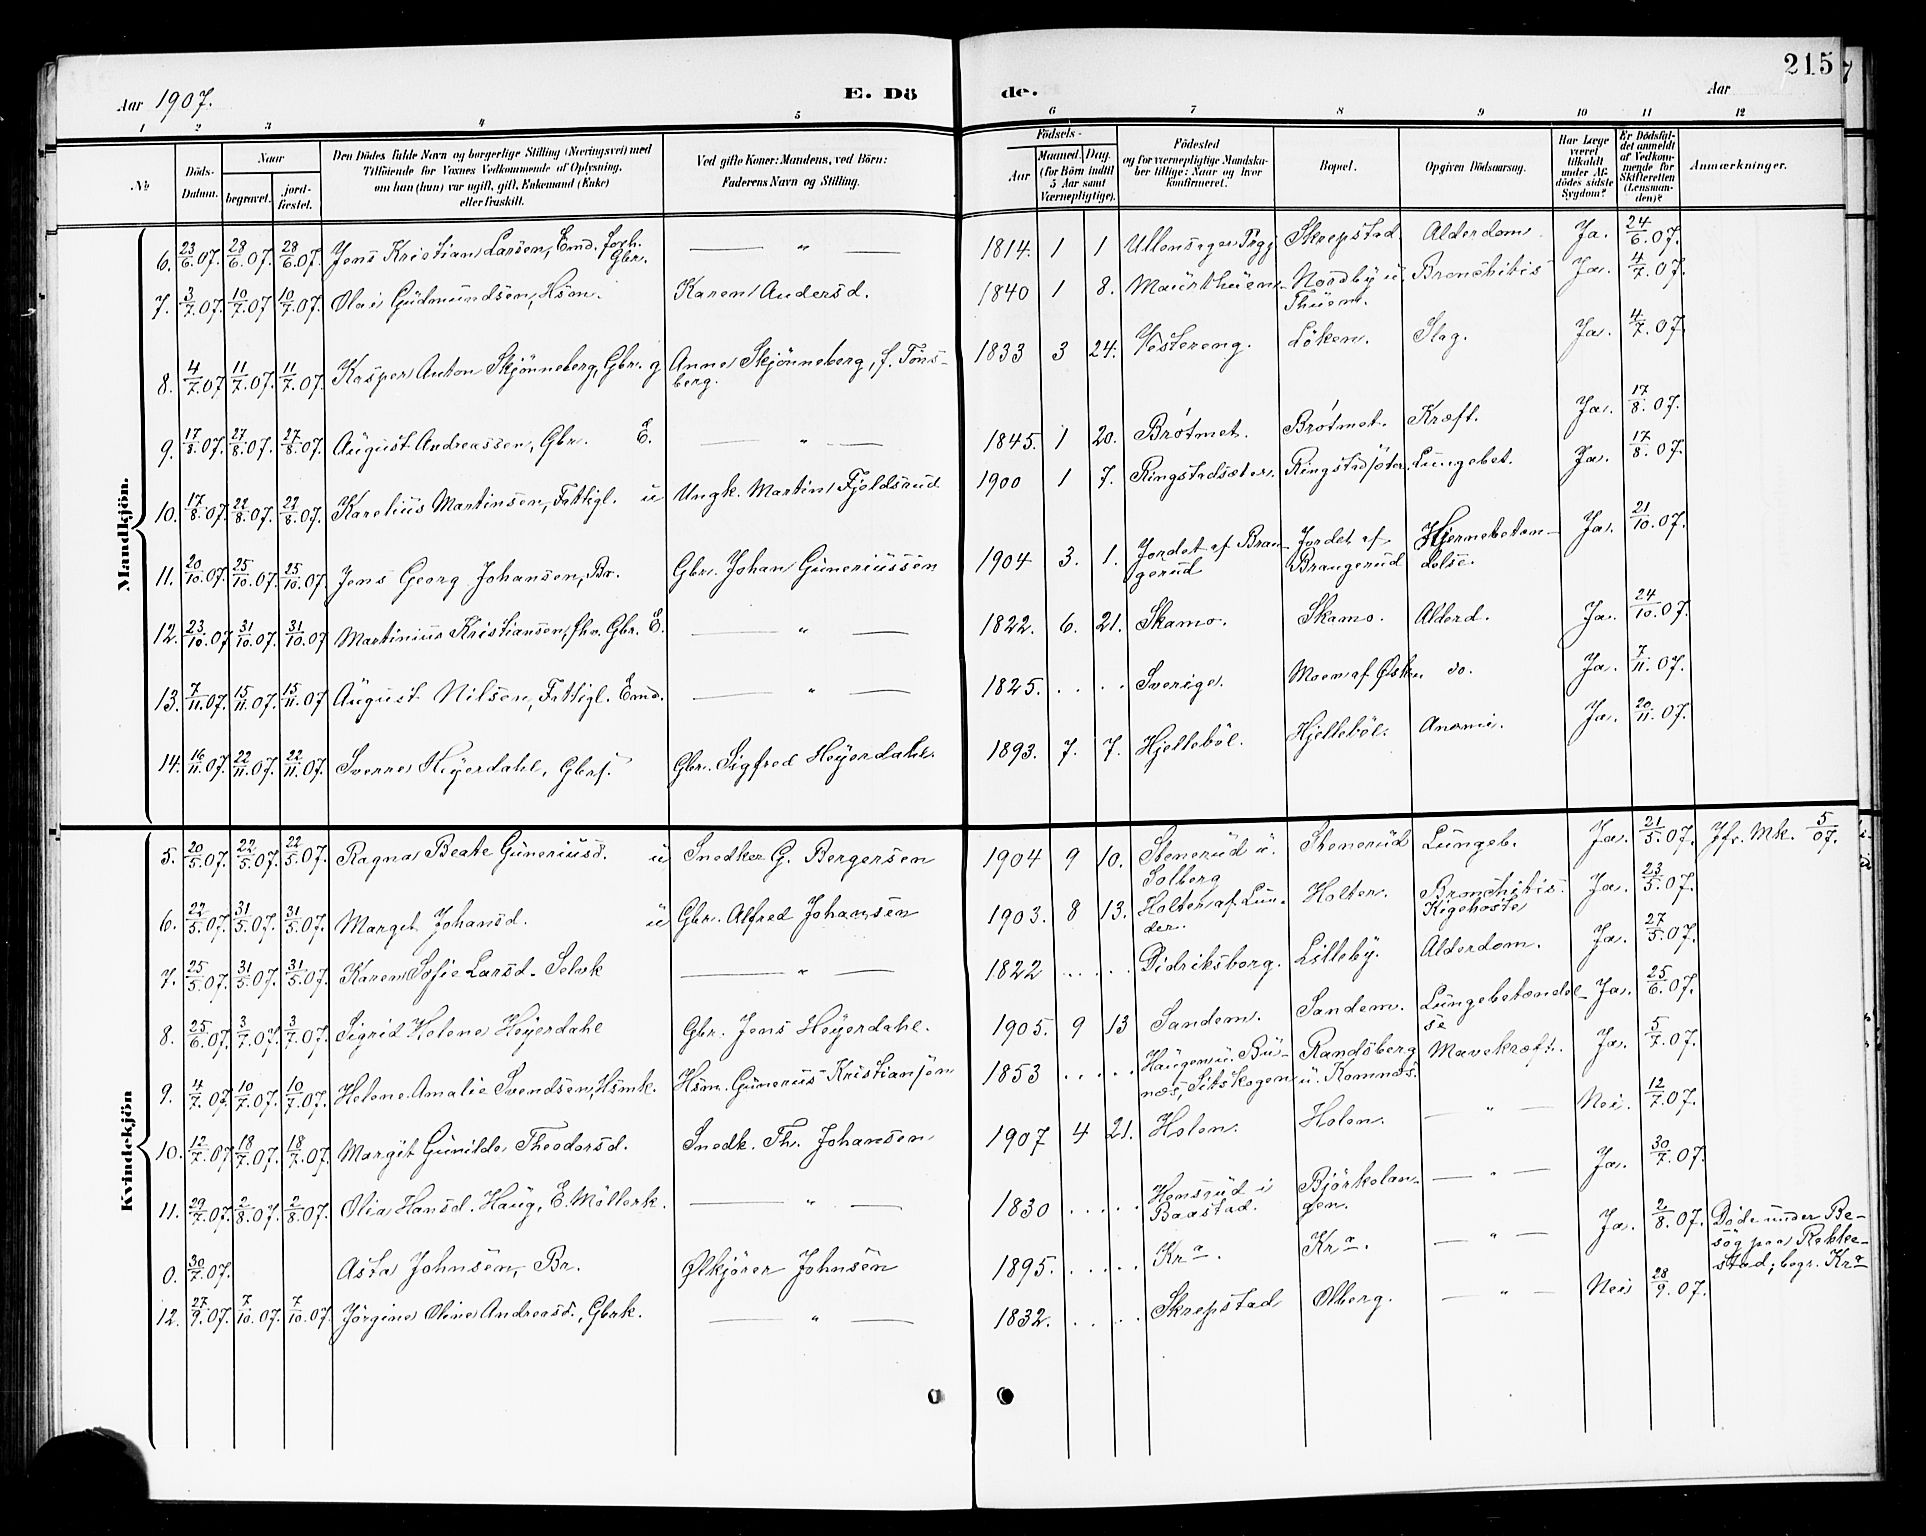 215
Aar 1907.
E. Dö de.
Aar
1 2 3 4 5 6 7 8 9 10 11 12
No
Döds-Datum.
Naar
begravet.
jord-fæstet.
Den Dödes fulde Navn og borgerlige Stilling (Næringsvei) med
Tilföiende for Voxnes Vedkommende af Oplysning,
om han (hun) var ugift, gift, Enkemand (Enke)
eller fraskilt.
Ved gifte Koner: Mandens, ved Börn:
Faderens Navn og Stilling.
Födsels-
Aar
Maaned. Dag.
(for Börn indtil 5 Aar samt Værnepligtige).
Födested
og for værnepligtige Mandskaber tillige: Naar og hvor konfirmeret.
Bopæl.
Opgiven Dödsaarsag.
Har Læge været tilkaldt under Afdödes sidste Sygdom?
Er Dödsfaldet anmeldt af Vedkommende for Skifteretten (Lensmanden)?
Anmærkninger.
Mandkjön.
6. 23/6.07. 28/6.07 28/6.07. Jens Kristian Larsen, Emd. forh. Gbr. — " — 1814. 1 1 Ullensager Prgj. Skrepstad Alderdom Ja. 24/6.07.
7. 3/7.07. 10/7.07 10/7.07. Olai Gudmundsen, Hsm. Karen Andersd. 1840 1 8. Maurthuen Nordby u. Thuen. Bronchitis Ja. 4/7.07.
8. 4/7.07 11/7.07. 11/7.07. Kasper Anton Skjönneberg, Gbr. g Anne Skjönneberg, f. Tönsberg. 1833 3 24. Vestereng. Löken. Slag. Ja. 4/7.07
9. 17/8.07. 27/8.07. 27/8.07. August Andreassen, Gbr. E. — " — 1845. 1 20. Brøtmet. Brøtmet. Kræft. Ja. 17/8.07.
10. 17/8.07. 22/8.07. 22/8.07. Karelius Martinsen, Fattigl. u Ungk. Martin Fjeldsrud 1900 1 7. Ringstadsæter. Ringstadsæter. Lungebet. Ja. 17/8.07.
11. 20/10.07. 25/10.07. 25/10.07. Jens Georg Johansen, Br. Gbr. Johan Guneriussen 1904 3. 1. Jordet af Brangerud Jordet af Brangerud Hjernebetændelse. Ja. 21/10.07.
12. 23/10.07. 31/10.07. 31/10.07 Martinius Kristiansen, fhv. Gbr. E. — " — 1822. 6. 21. Skamo. Skamo. Alderd. Ja. 24/10.07.
13. 7/11.07. 15/11.07. 15/11.07 August Nilsen, Fattigl. Emd. — " — 1825. . . . . Sverige. Moen af do. Ja. 7/11.07.
14. 16/11.07. 22/11.07. 22/11.07. Sverre Heyerdahl, Gbrs. Gbr. Sigfred Heyerdahl. 1893. 7. 7. Hjelleböl. Hjelleböl. Anæmi. Ja. 20/11.07.
Kvindekjön
5. 20/5.07. 22/5.07. 22/5.07. Ragna Beate Guneriusd. u Snedker G. Bergersen 1904 9 10. Stenerud u. Solberg Stenerud Lungeb. Ja. 21/5.07. Jfr. Mk. 5/07.
6. 22/5.07. 31/5.07. 31/5.07. Margit Johansd. u Gbr. Alfred Johansen 1903. 8 13. Holter af Lunder. Holter. Bronchitis. Kigehoste Ja. 23/5.07.
7. 25/5.07. 31/5.07. 31/5.07. Karen Sofie Larsd. Selvk — " — 1822 . . . . . Didriksborg. Lilleby. Alderdom. Ja. 27/5.07.
8. 25/6.07. 3/7.07. 3/7.07. Sigrid Helene Heyerdahl Gbr. Jens Heyerdahl. 1905. 9 13 Sandem. Sandem. Lungebetændelse Ja. 25/6.07.
9. 4/7.07. 10/7.07. 10/7.07. Helene Amalie Svendsen, Hsmk. Hsm. Gunerius Kristiansen 1853 . . . . . Haugen u. Bunæs, Sitskogen Randsberg u. Komnæs. Mavekræft. Ja. 5/7.07.
10. 12/7.07 18/7.07. 18/7.07. Margit Gunilde Theodorsd. Snedk. Th. Johansen 1907 4 21. Holen. Holen. — " — Nei. 12/7.07.
11. 29/7.07. 2/8.07. 2/8.07. Olia Hansd. Haug, E. Möllerk. — " — 1830 . . . . . Hensrud i Baastad. Björkelangen. — " — Ja. 30/7.07.
0. 30/7.07. Asta Johnsen, Br. Ølkjörer Johnsen 1895. . . . . . Kra. Kra. — " — Ja. 2/8.07. Döde under Besög paa Rekkestad; begr. Kra
12. 27/9.07. 7/10.07. 7/10.07. Jörgine Oline Andreasd., Gbrk. — " — 1832. . . . . Skrepstad Olberg. — " — Nei 28/9.07.